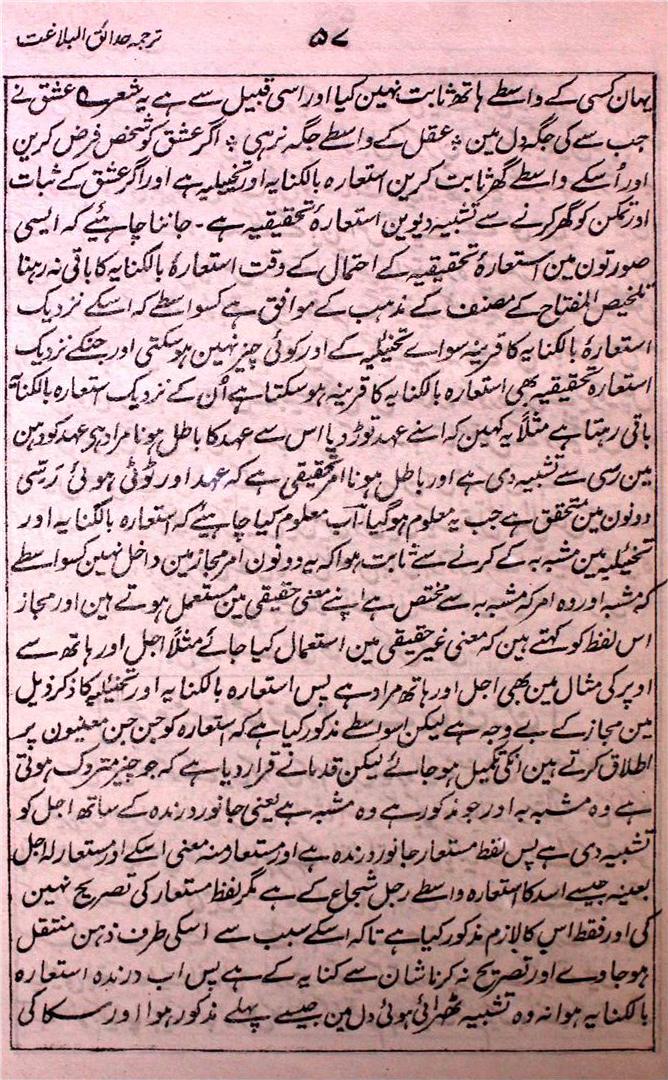 ترجمہ حدائق البلاغت ۵۷
یہان کسی کے واسطے ہاتھ ثابت نہین کیا اور اسی قبیل سے ہے یہ شعر ؎ عشق نے
جب سے کی جگہ دل مین ؞ عقل کے واسطے جگہ نرہی ؞ اگر عشق کو شخص فرض کرین
اور اُسکے واسطے گھر ثابت کرین استعارہ بالکنایہ اور تخییلیہ ہے اور اگر عشق کے ثبات
اور تمکن کو گھر کرنے سے تشبیہ دیوین استعارۂ تحقیقیہ ہے۔ جاننا چاہئیے کہ ایسی
صورتون مین استعارۂ تحقیقیہ کے احتمال کے وقت استعارۂ بالکنایہ کا باقی نہ رہنا
تلخیص المفتاح کے مصنف کے مذہب کے موافق ہے کسواسطے کہ اسکے نزدیک
استعارۂ بالکنایہ کا قرینہ سواے تخییلیہ کے اور کوئی چیز نہین ہو سکتی اور جنکے نزدیک
استعارہ تحقیقیہ بھی استعارہ بالکنایہ کا قرینہ ہو سکتا ہے اُن کے نزدیک استعارہ بالکنایہ
باقی رہتا ہے مثلاً یہ کہین کہ اسنے عہد توڑ دیا اس سے عہد کا باطل ہونا مراد ہی عہد کو ذہن
مین رسی سے تشبیہ دی ہے اور باطل ہونا امر تحقیقی ہے کہ عہد اور ٹوٹی ہوئی رسّی
دونون مین متحقق ہے جب یہ معلوم ہو گیا۔ اب معلوم کیا چاہیئے کہ استعارہ بالکنایہ اور
تخییلیہ مین مشبہ بہ کے کرنے سے ثابت ہوا کہ یہ دونون امر مجاز مین داخل نہین کسواسطے
کہ مشبہ اور وہ امر کہ مشبہ بہ سے مختص ہے اپنے معنی حقیقی مین مستعمل ہوتے ہین اور مجاز
اس لفظ کو کہتے ہین کہ معنی غیر حقیقی مین استعمال کیا جائے مثلاً اجل اور ہاتھ سے
اوپر کی مثال مین بھی اجل اور ہاتھ مراد ہے پس استعارہ بالکنایہ اور تخییلیہ کا ذکر ذیل
مین مجاز کے بے وجہ ہے لیکن اسواسطے مذکور کیا ہے کہ استعارہ کو جن جن معنیون پر
اطلاق کرتے ہین انکی تکمیل ہو جائے لیکن قدما نے قرار دیا ہے کہ جو چیز متروک ہوتی
ہے وہ مشبہ بہ اور جو مذکور ہے وہ مشبہ ہے یعنی جانور درندہ کے ساتھ اجل کو
تشبیہ دی ہے پس لفظ مستعار جانور درندہ ہے اور مستعار منہ معنی اسکے اور مستعار لہ اجل
بعینہ جیسے اسد کا استعارہ واسطے رجل شجاع کے ہے مگر لفظ مستعار کی تصریح نہین
کی اور فقط اس کا لازم مذکور کیا ہے تاکہ اسکے سبب سے اسکی طرف ذہن منتقل
ہو جاوے اور تصریح نہ کرنا شان سے کنایہ کے ہے پس اب درندہ استعارہ
بالکنایہ ہوا نہ وہ تشبیہ ٹھرائی ہوئی دل مین جیسے پہلے مذکور ہوا اور سکاکی